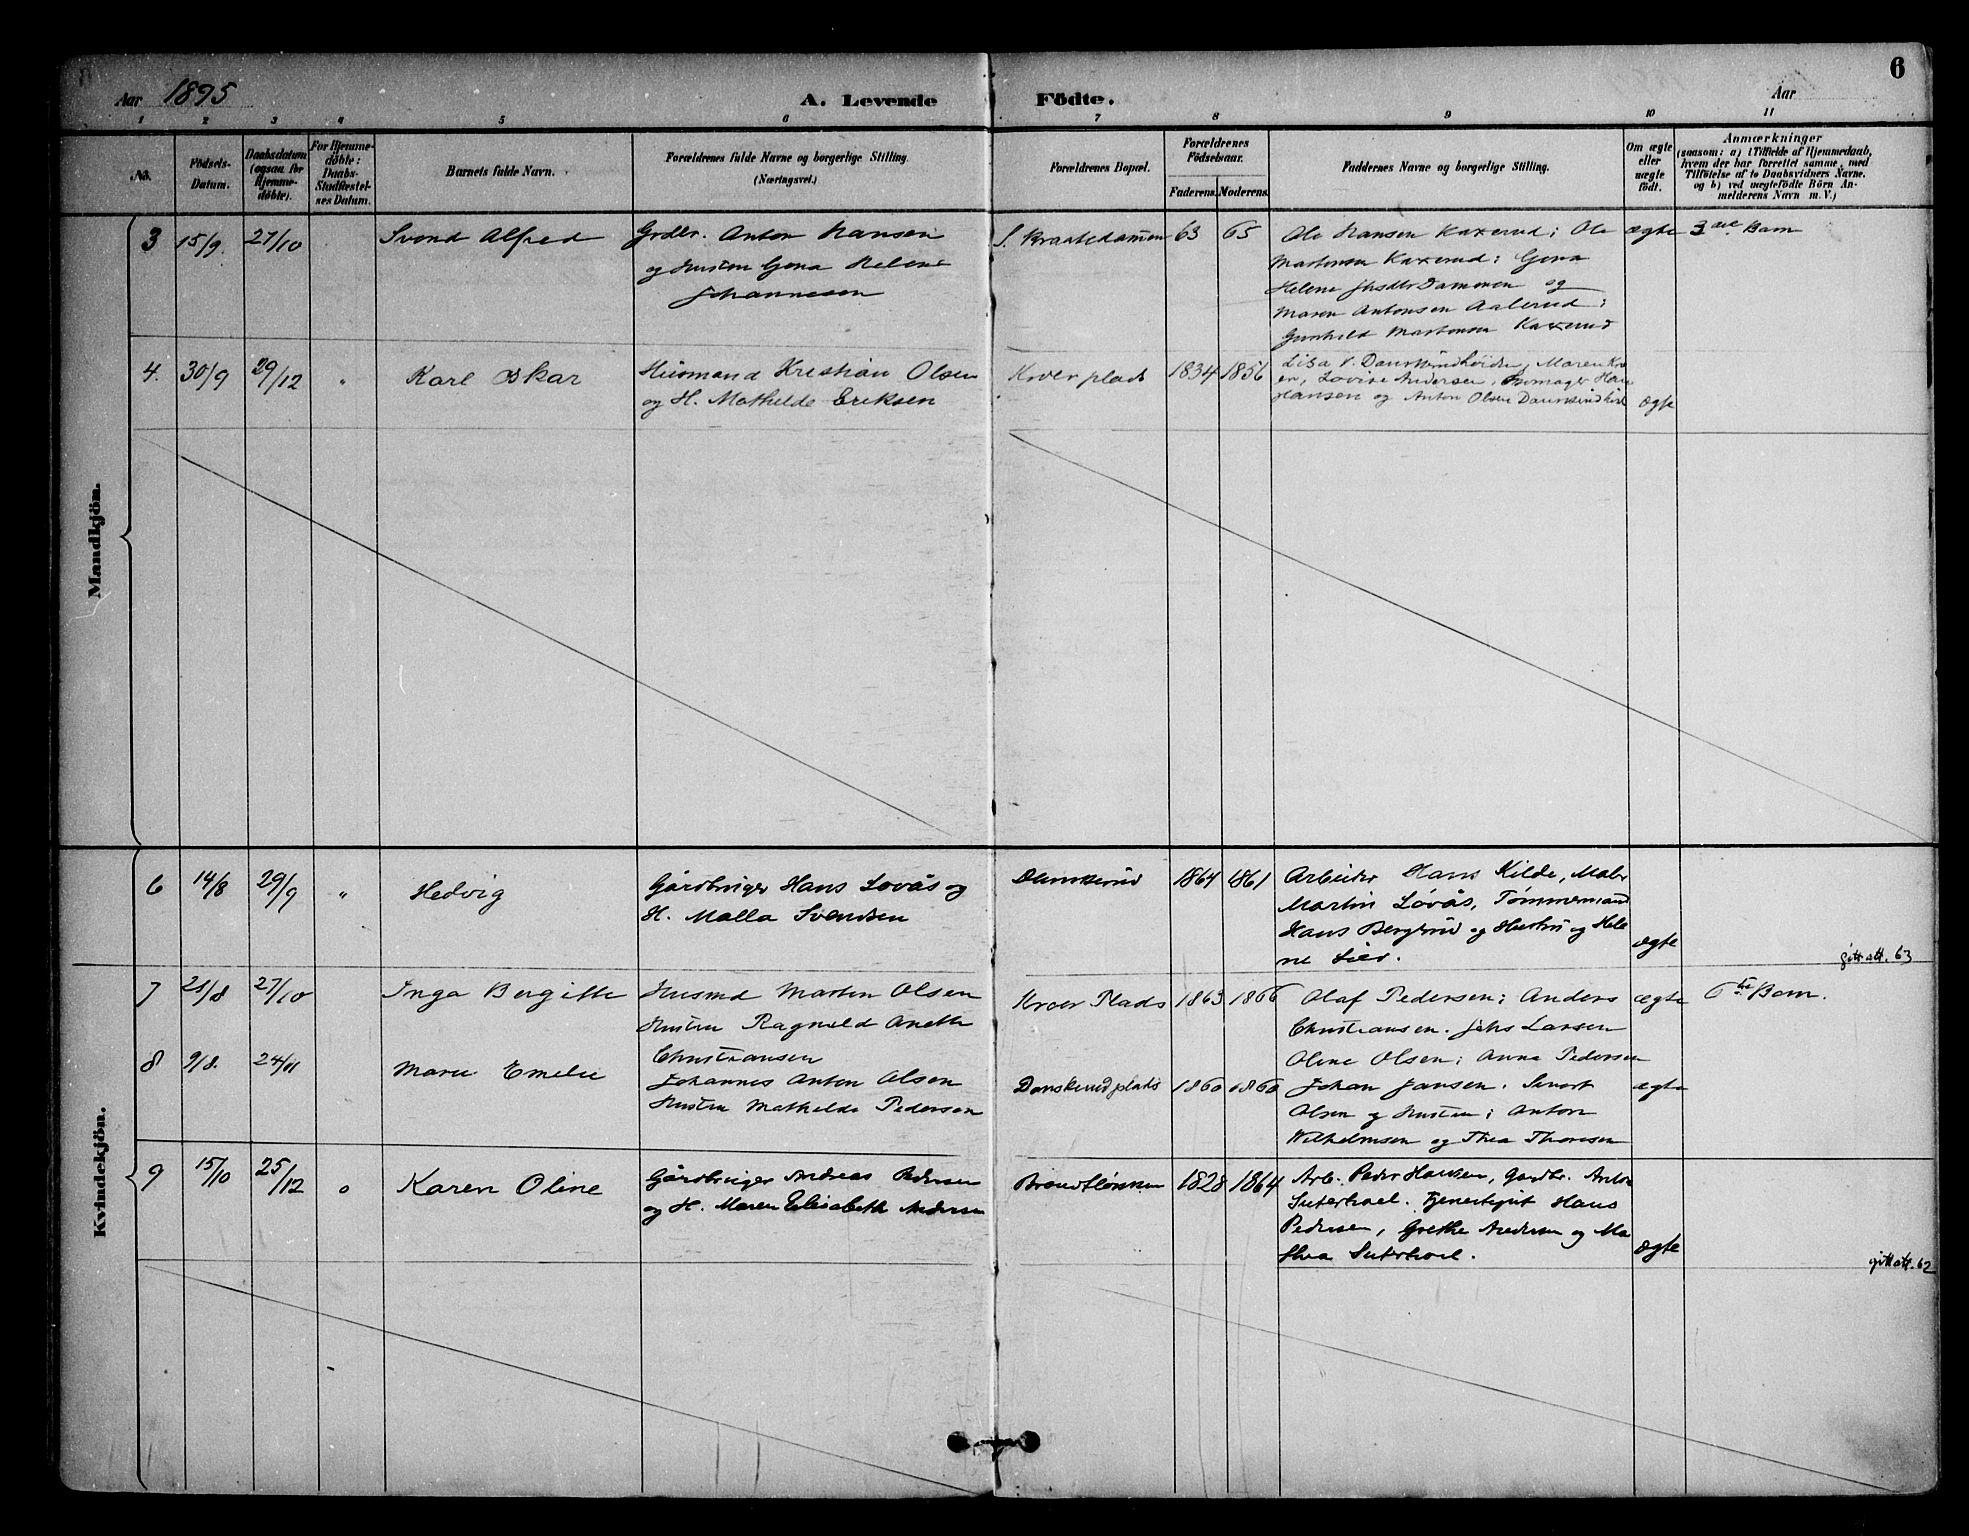 6
Aar 1895
A. Levende Födte.
Aar
1 2 3 4 5 6 7 8 9 10 11
No.
Födsels-Datum.
Daabsdatum (ogsaa for Hjemmedöbte).
For Hjemmedöbte: Daabs-Stadfæstelses Datum.
Barnets fulde Navn.
Forældrenes fulde Navne og borgerlige Stilling. (Næringsvei.)
Forældrenes Bopæl.
Forældrenes Födselsaar.
Faderens. Moderens.
Faddernes Navne og borgerlige Stilling.
Om ægte eller uægte födt.
Anmærkninger
(saasom: a) i Tilfælde af Hjemmedaab,
hvem der har forrettet samme, med
Tilföielse af to Daabsvidners Navne,
og b) ved uægtefödte Börn An-
melderens Navn m. V.)
Mandkjön.
3 15/9 27/10 Svend Alfred
Grdbr. Anton Hansen
og Hustru Gena Helene
Johannesen
S. Kraatedammen 63 65
Ole Hansen Kaxerud; Ole
Martensen Kaxerud; Gena
Helene Dammen og
Maren Antonsen Aalerud;
Gunhild Martensen Kaxerud
ægte
3die Barn
4. 30/9 29/12 " Karl Oskar
Husmand Kristian Olsen
og H. Mathilde Eriksen
Kroer plads 1834 1856
Lisa Maren Kro
er, Lovise Andersen,
Hansen og Anton Olsen
ægte
Kvindekjön.
6 14/8 29/9 " Hedvig
Gårdbruger Hans Lovås og
H. Malla Svendsen
Danskerud 1864 1861
Arbeider Hans Kilde, Maler
Martin Løvås, Tømmermand
Hans Bergerud og Hustru og Hele
ne Lier.
ægte
gitt att. 63
7 21/8 27/10 Inga Bergitte
Husmd Martin Olsen
Hustru Ragnild Anette
Christiansen
Kroer Plads 1863 1866
Olaf Pedersen; Anders
Christiansen. Johs Larsen
Oline Olsen; Anna Pedersen
ægte
6te Barn.
8 9/8. 24/11 Marie Emelie
Johannes Anton Olsen
Hustru Mathilde Pedersen
Danskerud plads 1860 1860
Johan Jansen. Sivert
Olsen og Hustru; Anton
Wilhelmsen og Thea Thoresen
ægte
9 15/10 25/12 o Karen Oline
Gårdbruger Andreas Pedersen
og H. Maren Elisabeth Andersen
1828 1864
Arb. Peder Hansen, Gardbr. Anton
Sneterhoel. Tjenestegut Hans
Pedersen, Grethe Andersen og Ma
thea Sneterhoel.
ægte
gitt att. 62